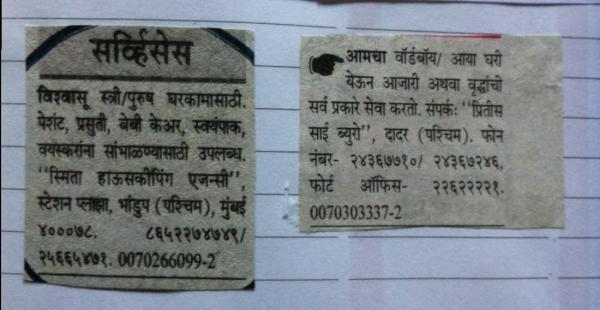 सर्व्हिसेस
विश्वासू स्त्री/पुरुष घरकामासाठी.
पेशंट, प्रसुती, बेबी केअर, स्वयंपाक,
वयस्करांना सांभाळण्यासाठी उपलब्ध.
"स्मिता हाऊसकीपिंग एजन्सी",
स्टेशन प्लाझा, भांडुप (पश्चिम), मुंबई
४०००७८. ८६५२२७४७४९/
२५६६५४७१. 0070266099-2
आमचा वॉर्डबॉय/ आया घरी
येऊन आजारी अथवा वृद्धांची
सर्व प्रकारे सेवा करतो. संपर्कः "प्रितीस
साई ब्युरो", दादर (पश्चिम). फोन
नंबर- २४३६७७१०/ २४३६७२४६,
फोर्ट ऑफिस- २२६२२२२१.
0070303337-2